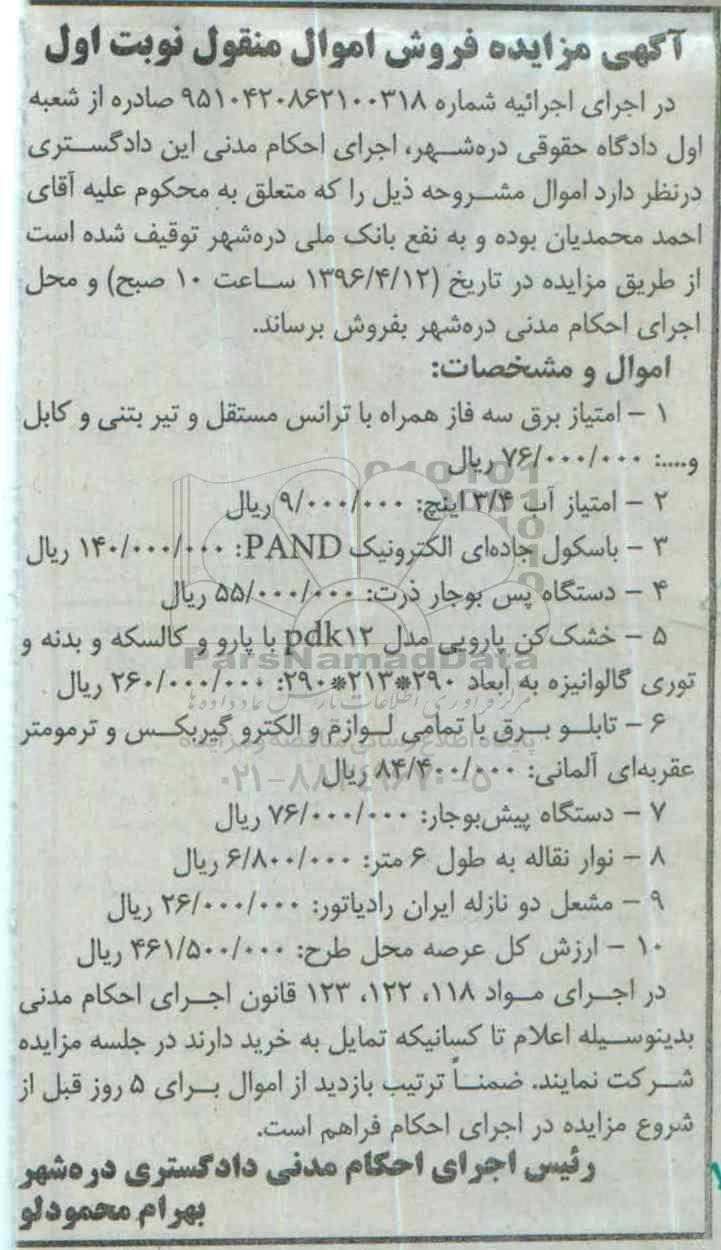 آگهی مزایده فروش اموال منقول نوبت اول
در اجرای اجرائیه شماره ۹۵۱۰۴۲۰۸۶۲۱۰۰۳۱۸ صادره از شعبه
اول دادگاه حقوقی دره‌شهر، اجرای احکام مدنی این دادگستری
درنظر دارد اموال مشروحه ذیل را که متعلق به محکوم علیه آقای
احمد محمدیان بوده و به نفع بانک ملی دره‌شهر توقیف شده است
از طریق مزایده در تاریخ (۱۳۹۶/۴/۱۲ ساعت ۱۰ صبح) و محل
اجرای احکام مدنی دره‌شهر بفروش برساند.
اموال و مشخصات:
۱ – امتیاز برق سه فاز همراه با ترانس مستقل و تیر بتنی و کابل
و....: ۷۶/۰۰۰/۰۰۰ ریال
۲ – امتیاز آب ۳/۴ اینچ: ۹/۰۰۰/۰۰۰ ریال
۳ – باسکول جاده‌ای الکترونیک PAND: ۱۴۰/۰۰۰/۰۰۰ ریال
۴ – دستگاه پس بوجار ذرت: ۵۵/۰۰۰/۰۰۰ ریال
۵ – خشک‌کن پارویی مدل pdk۱۲ با پارو و کالسکه و بدنه و
ParsNamadData
توری گالوانیزه به ابعاد ۲۹۰*۲۱۳*۲۹۰: ۲۶۰/۰۰۰/۰۰۰ ریال
۶ – تابلو برق با تمامی لوازم و الکترو گیربکس و ترمومتر
پایگاه اطلاع رسانی مناقصه و مزایده
عقربه‌ای آلمانی: ۸۴/۴۰۰/۰۰۰ ریال
۷ – دستگاه پیش‌بوجار: ۷۶/۰۰۰/۰۰۰ ریال
۸ – نوار نقاله به طول ۶ متر: ۶/۸۰۰/۰۰۰ ریال
۹ – مشعل دو نازله ایران رادیاتور: ۲۶/۰۰۰/۰۰۰ ریال
۱۰ – ارزش کل عرصه محل طرح: ۴۶۱/۵۰۰/۰۰۰ ریال
در اجرای مواد ۱۱۸، ۱۲۲، ۱۲۳ قانون اجرای احکام مدنی
بدینوسیله اعلام تا کسانیکه تمایل به خرید دارند در جلسه مزایده
شرکت نمایند. ضمناً ترتیب بازدید از اموال برای ۵ روز قبل از
شروع مزایده در اجرای احکام فراهم است.
رئیس اجرای احکام مدنی دادگستری دره‌شهر
بهرام محمودلو